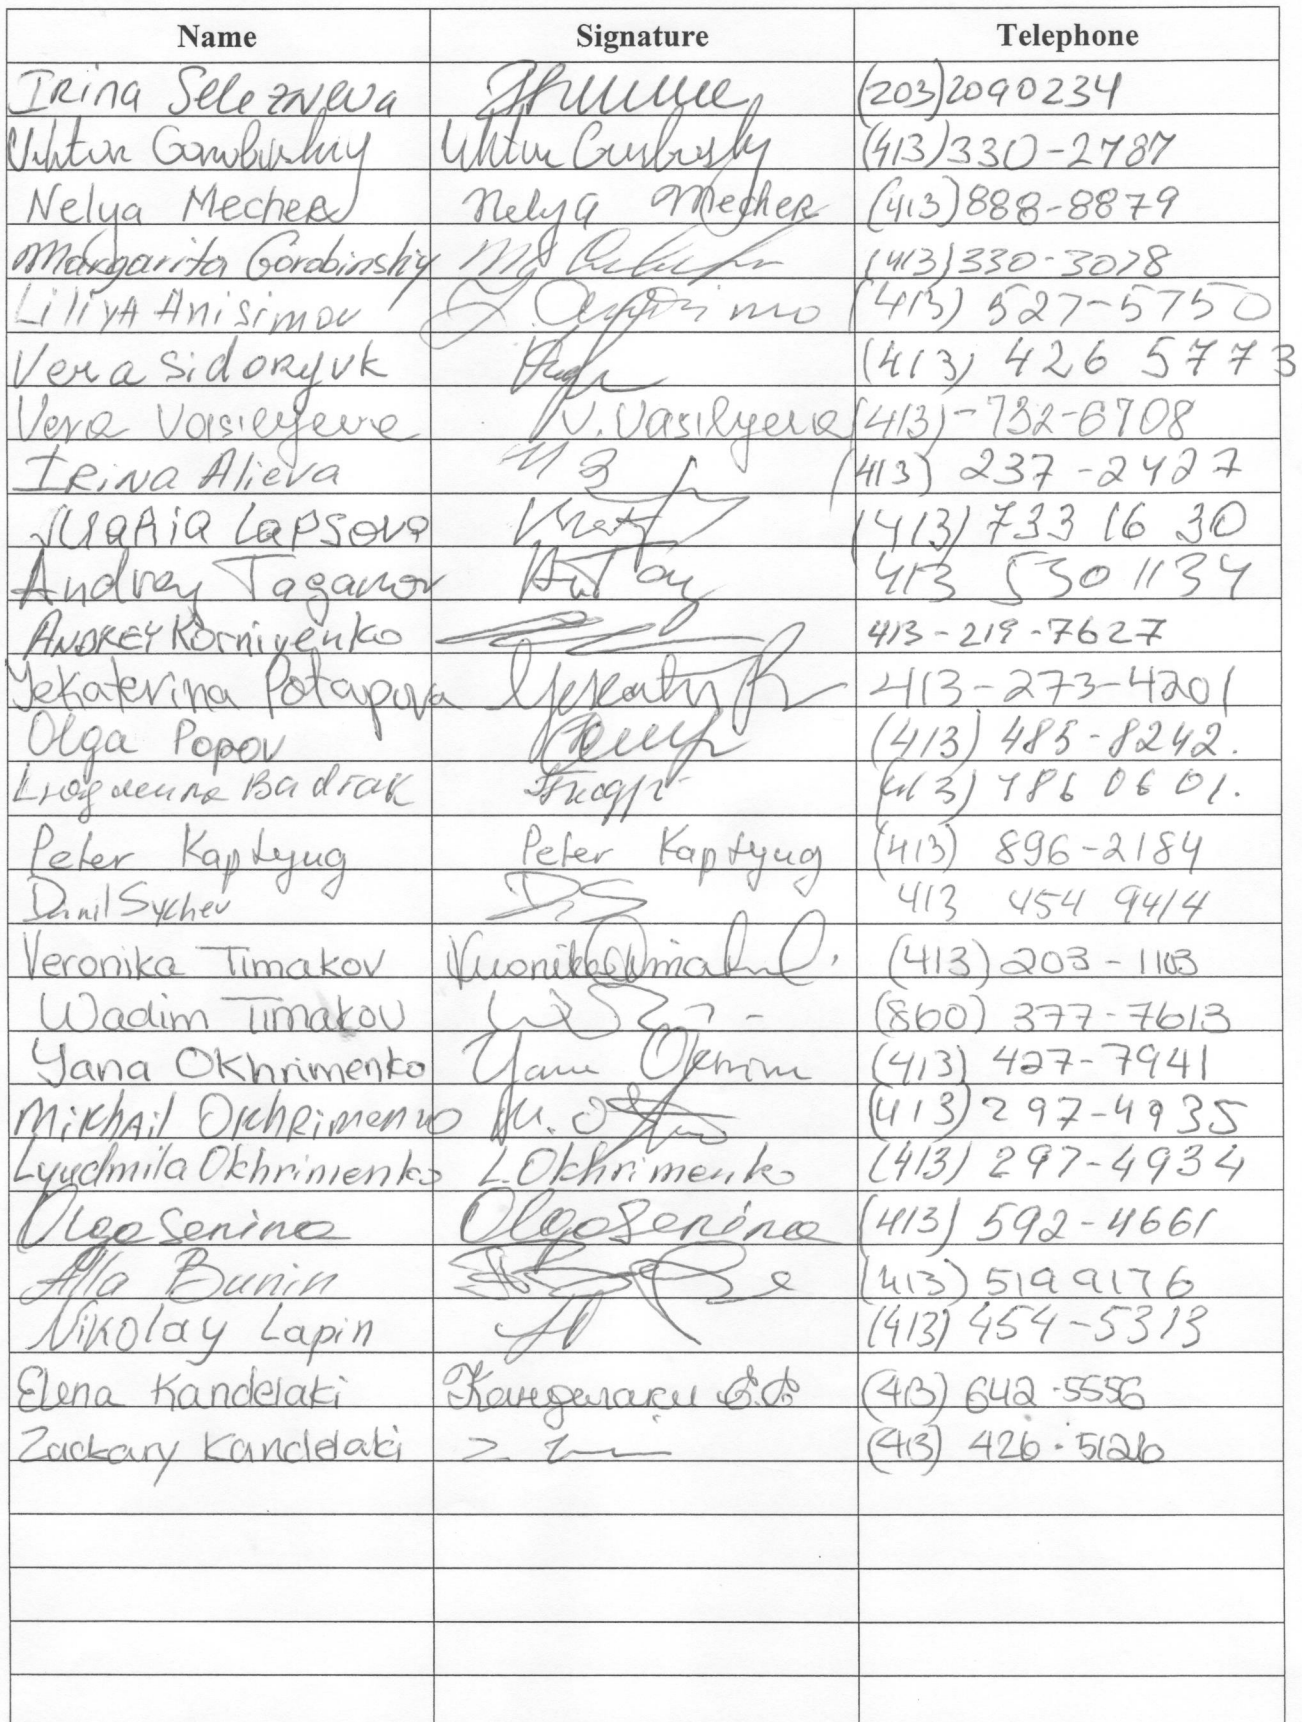 Name Signature Telephone
Irina Selezneva (203)2090234
Viktor Gorobinskiy (413)330-2787
Nelya Mecher Nelya Mecher (413)888-8879
Margarita Gorobinskiy (413)330-3078
Liliya Anisimov (413) 527-5750
Vera Sidoryuk (413) 426 5773
Vera Vasilyeva V. Vasilyeva (413)-732-6708
Irina Alieva (413) 237-2427
Maria Lapsova (413) 733 16 30
Andrey Taganov 413 530 1134
Andrey Korniyenko 413-219-7627
Yekaterina Potapova 413-273-4201
Olga Popov (413) 485-8242.
Badrak (413) 786 06 01.
Peter Kaptyug Peter Kaptyug (413) 896-2184
Danil Sychev DS 413 454 9414
Veronika Timakov Veronika Timakov (413) 203-1103
Wadim Timakov (860) 377-7613
Yana Okhrimenko Yana (413) 427-7941
Mikhail Okhrimenko (413) 297-4935
Lyudmila Okhrimenko L.Okhrimenko (413) 297-4934
Olga Senina Olga Senina (413) 592-4661
Alla Bunin (413) 519 9176
Nikolay Lapin (413) 454-5313
Elena Kandelaki Канделаки (413) 642-5556
Zackary Kandelaki (413) 426-5126